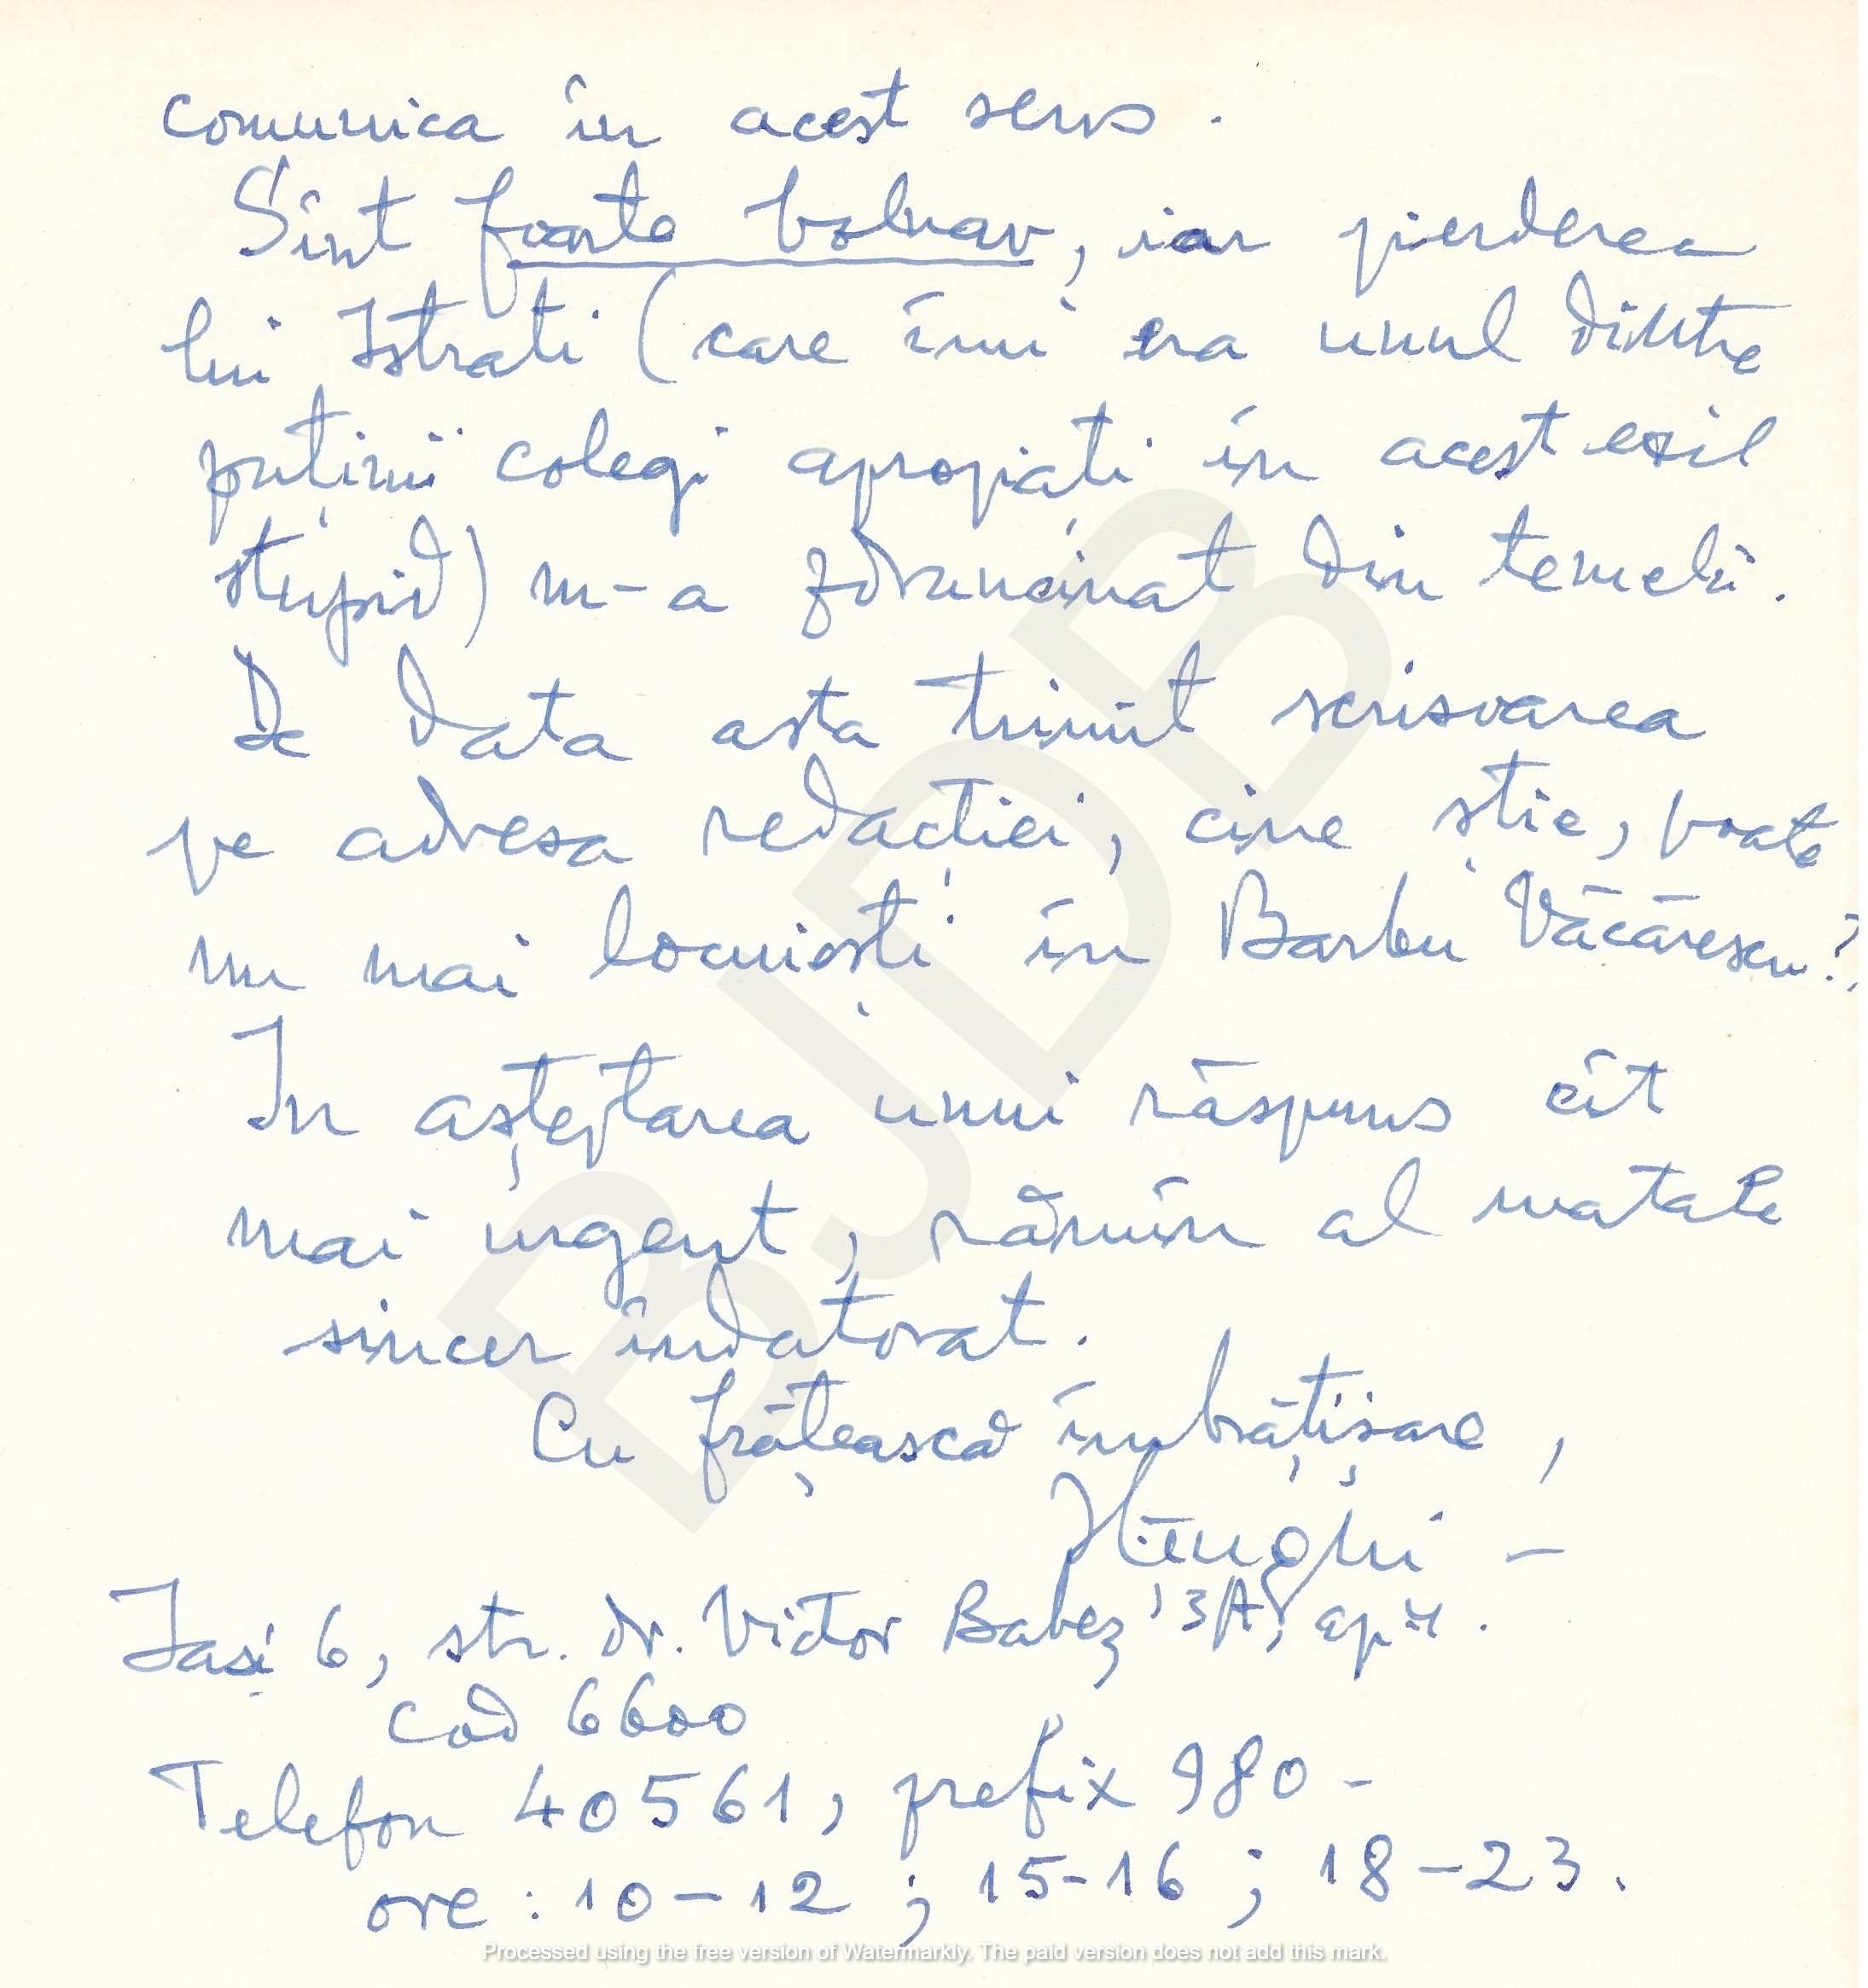 comunica în acest sens.
Sînt foarte bolnav, iar pierderea
lui Istrati (care îmi era unul dintre
puținii colegi apropiați în acest exil
stupid) m-a zdruncinat din temelii.
De data asta trimit scrisoarea
pe adresa redacției, cine știe, poate
nu mai locuiești în Barbu Văcărescu?
In așteptarea unui răspuns cît
mai urgent, rămîn al matale
sincer îndatorat.
Cu frățească îmbrățișare,
Iași 6, str. dr. Victor Babeș 13A, ap 4.
cod 6600
Telefon 40561, prefix 980-
ore: 10-12; 15-16; 18-23.
BJDB
Processed using the free version of Watermarkly. The paid version does not add this mark.